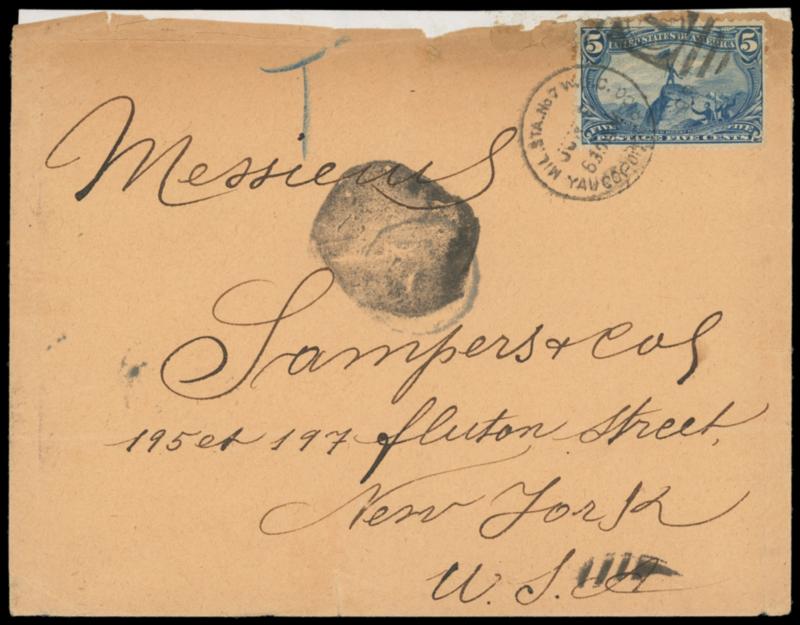 T
5 UNITED STATES OF AMERICA 5
FIVE FIVE
POSTAGE FIVE CENTS
MIL. STA. No 7 W.
YAUCO
Messieurs
Sampers & Co/
195 et 197 fluton Street,
New York
U. S. A